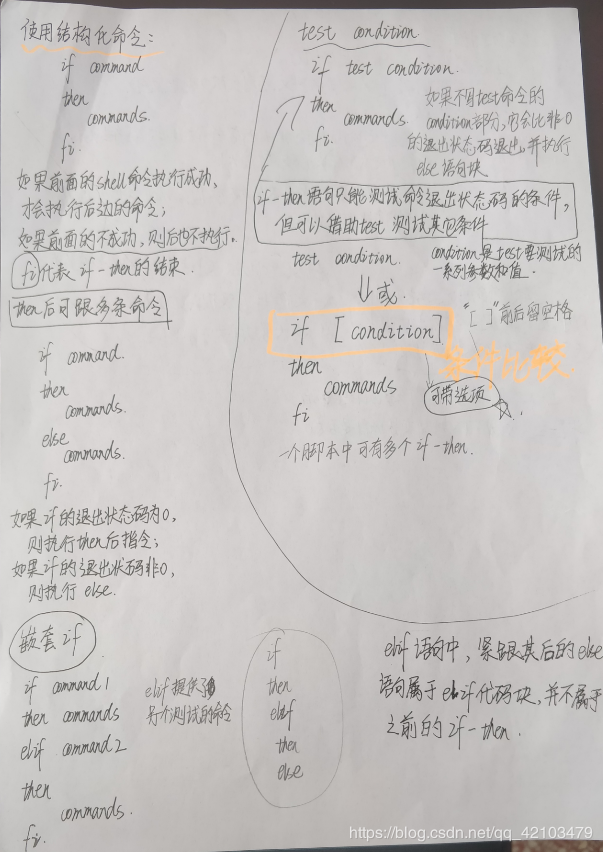 使用结构化命令:
if command
then
commands.
fi.
如果前面的shell命令执行成功,
才会执行后边的命令;
如果前面的不成功,则后也不执行。
fi代表 if-then的结束.
then后可跟多条命令
if command.
then
commands.
else
commands.
fi.
如果if的退出状态码为0,
则执行then后指令;
如果if的退出状码非0,
则执行 else.
嵌套if
if command1
then commands
elif command2
then
commands.
fi.
elif提供了
另个测试的命令
if
then
elif
then
else
test condition.
if test condition.
then
commands.
fi.
如果不用test命令的
condition部分,它会以非0
的退出状态码退出,并执行
else语句块
if-then语句只能测试命令退出状态码的条件,
但可以借助test 测试其它条件
test condition.
condition是test要测试的
一系列参数和值.
或.
if [ condition]
"[ ]"前后留空格
条件比较
then
commands
fi
可带选项
一个脚本中可有多个 if-then.
elif 语句中, 紧跟其后的else
语句属于elif代码块,并不属于
之前的 if-then.
https://blog.csdn.net/qq_42103479